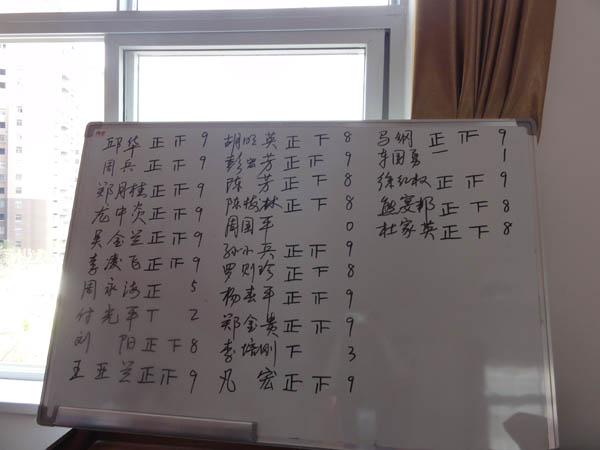 邱华 正 正 9
周兵 正 正 9
郑月桂 正 正 9
龙中炎 正 正 9
吴金兰 正 正 9
李凌飞 正 正 9
周永涛 正 5
付光平 丅 2
刘 阳 正 下 8
王亚兰 正 正 9
胡明英 正 下 8
彭出芳 正 正 9
陈 芳 正 下 8
陈梅林 正 下 8
周国平 0
孙小兵 正 正 9
罗则珍 正 下 8
杨春平 正 正 9
郑金贵 正 正 9
李培刚 下 3
凡 宏 正 正 9
马纲 正 正 9
车国勇 一 1
徐红权 正 正 9
熊宴邦 正 下 8
杜家英 正 下 8